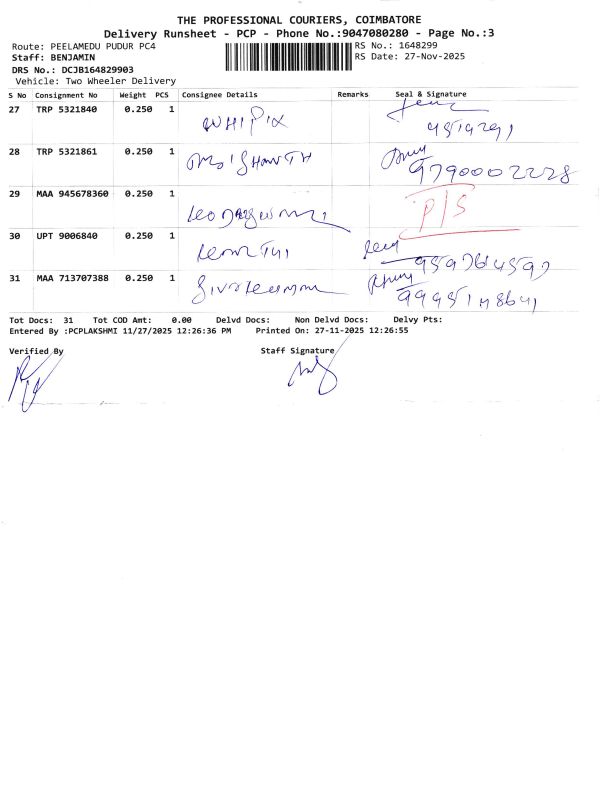 THE PROFESSIONAL COURIERS, COIMBATORE
Delivery Runsheet - PCP - Phone No.:9047080280 - Page No.:3
Route: PEELAMEDU PUDUR PC4
RS No.: 1648299
Staff: BENJAMIN
RS Date: 27-Nov-2025
DRS No.: DCJB164829903
Vehicle: Two Wheeler Delivery
S No Consignment No Weight PCS Consignee Details Remarks Seal & Signature
27 TRP 5321840 0.250 1 WHIPIX
28 TRP 5321861 0.250 1 9790002228
29 MAA 945678360 0.250 1 P/S
30 UPT 9006840 0.250 1
31 MAA 713707388 0.250 1
Tot Docs: 31 Tot COD Amt: 0.00 Delvd Docs: Non Delvd Docs: Delvy Pts:
Entered By :PCPLAKSHMI 11/27/2025 12:26:36 PM Printed On: 27-11-2025 12:26:55
Verified By Staff Signature